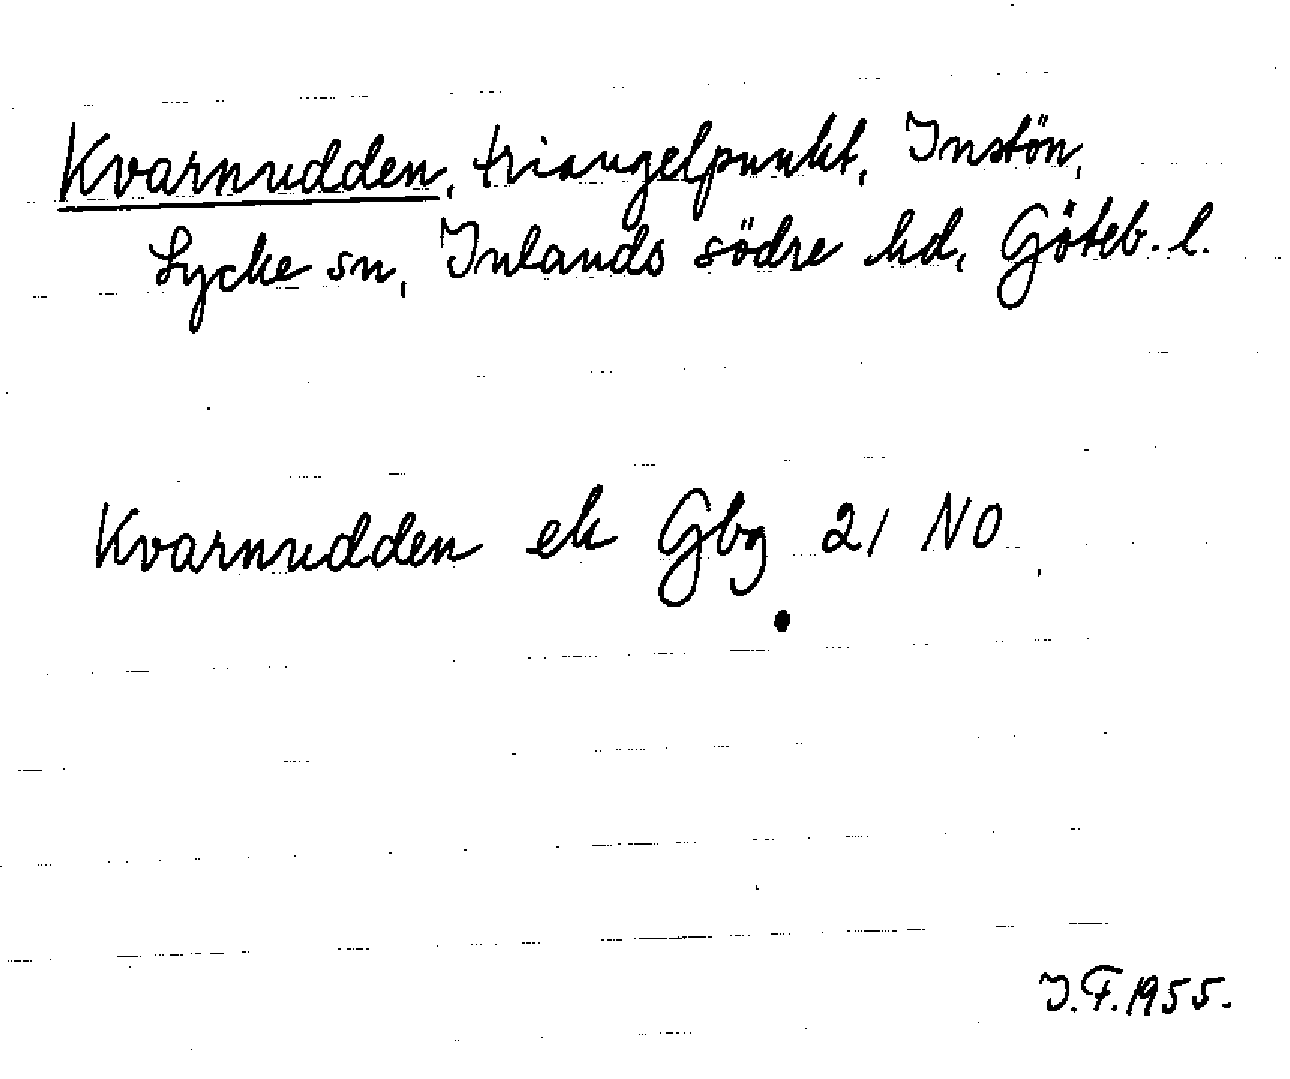 Kvarnudden, triangelpunkt, Instön,
Lycke sn, Inlands södre hd, Göteb. l.
Kvarnudden ek Gbg 21 NO
I.F.1955.